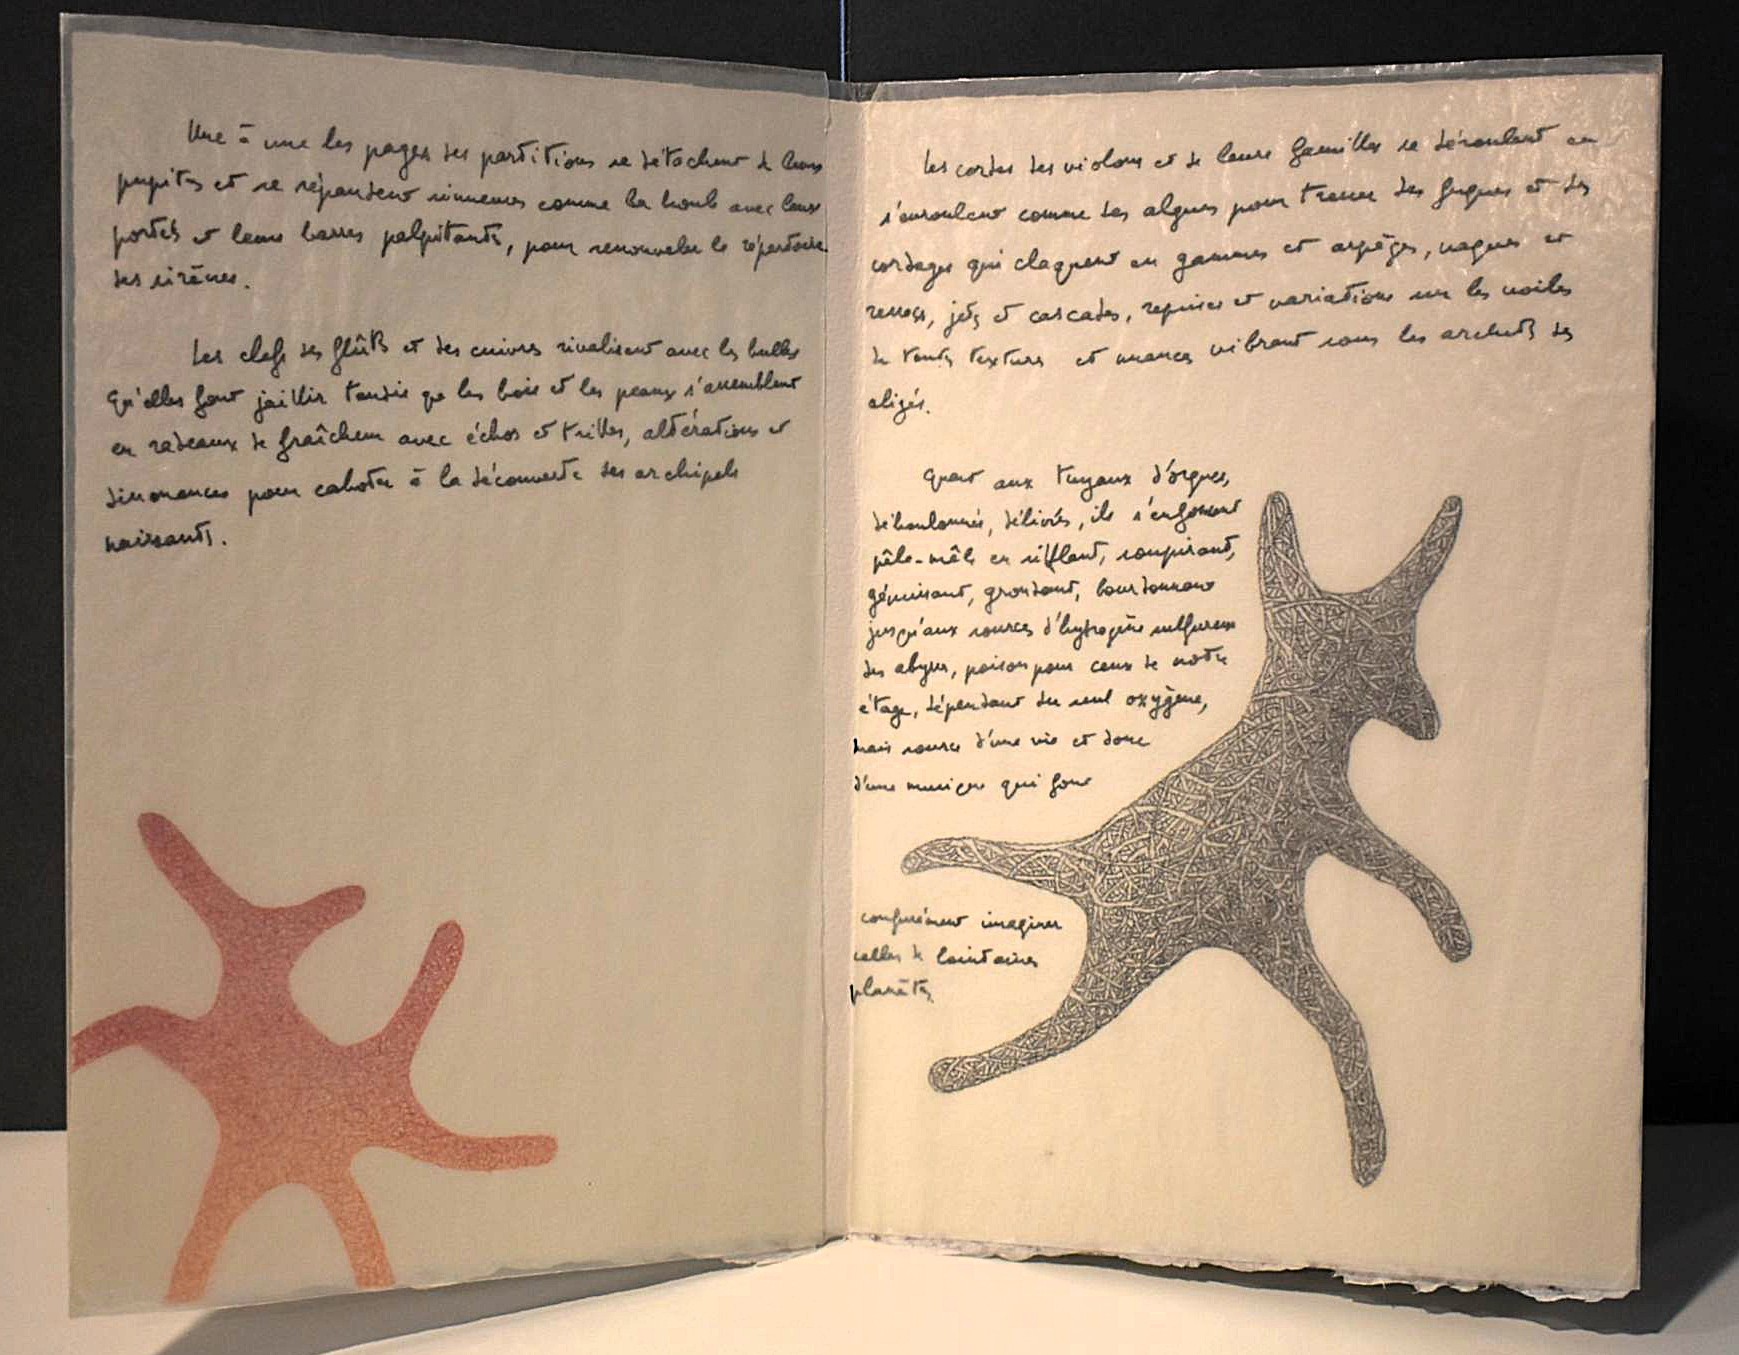 Une à une les pages des partitions se détachent de leurs
pupitres et se répandent sinueuses comme la houle avec leurs
portées et leurs barres palpitantes, pour renouveler le répertoire
des sirènes.
Les clefs des flûtes et des cuivres rivalisent avec les bulles
qu'elles font jaillir tandis que les bois et les peaux s'assemblent
en radeaux de fraîcheur avec échos et trilles, altérations et
dissonances pour caboter à la découverte des archipels
naissants.
Les cordes des violons et de leurs familles se déroulent en
s'enroulent comme des algues pour tresser des fugues et des
cordages qui claquent en gammes et arpèges, vagues et
ressacs, jets et cascades, reprises et variations sur les voiles
de toutes textures et nuances vibrant sous les archets des
alizés.
Quant aux tuyaux d'orgues,
déboulonnés, délivrés, ils s'enfoncent
pêle-mêle en sifflant, soupirant,
gémissant, grondant, bourdonnant
jusqu'aux sources d'hydrogène sulfureux
des abysses, poison pour ceux de notre
étage, dépendant du seul oxygène,
mais source d'une vie et donc
d'une musique qui font
confusément imaginer
celles de lointaines
planètes.